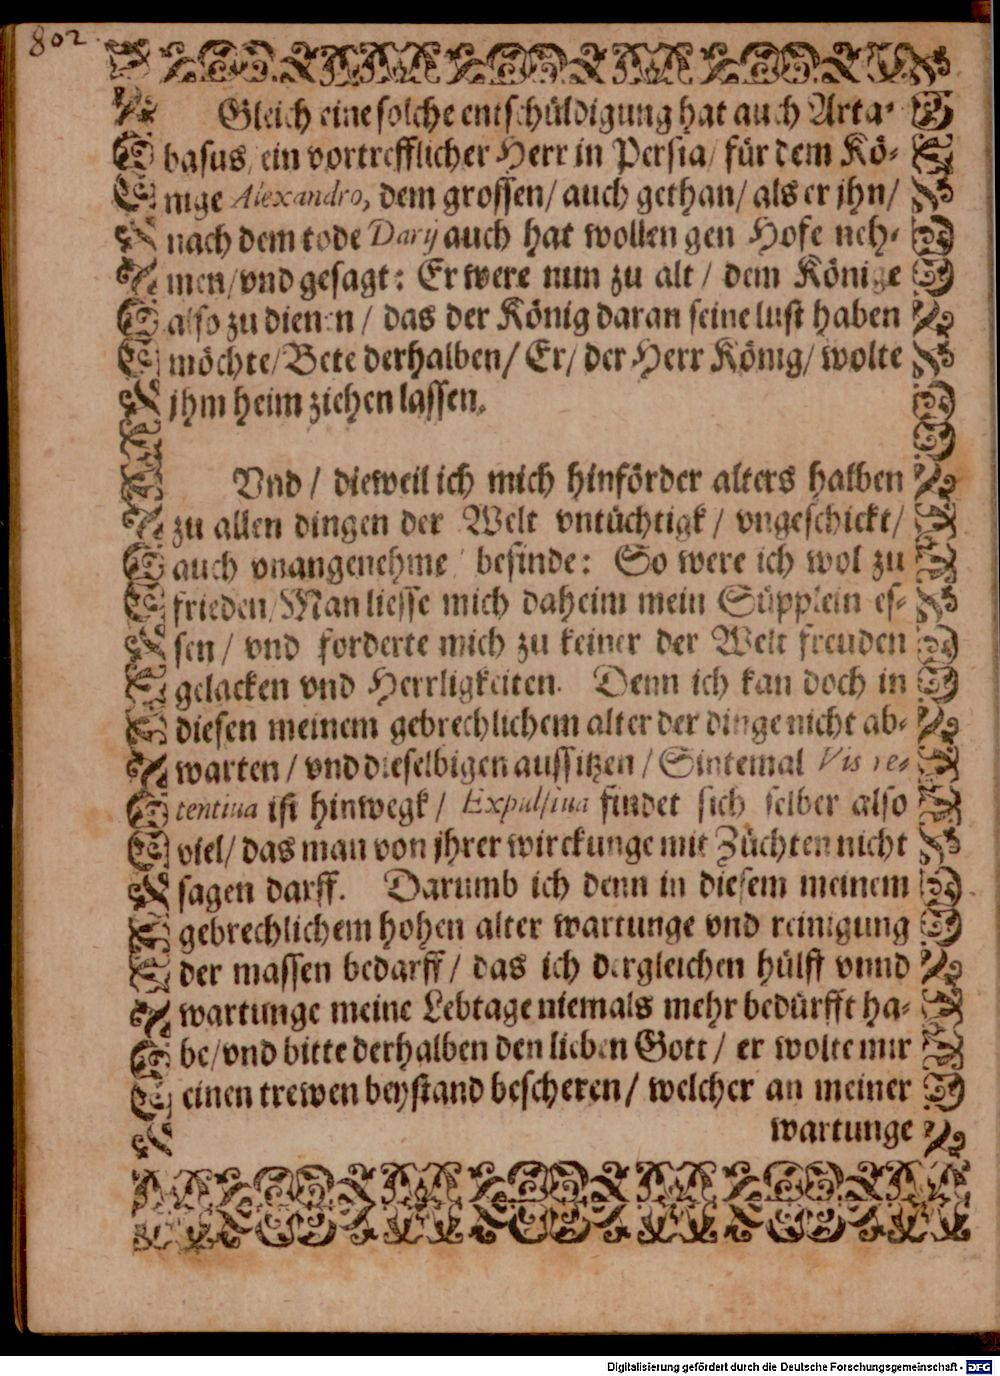 802.
Gleich eine solche entschüldigung hat auch Arta-
basus/ ein vortrefflicher Herr in Persia/ für dem Kö-
nige Alexandro, dem grossen/ auch gethan/ als er jhn/
nach dem tode Darij auch hat wollen gen Hofe neh-
men/ vnd gesagt: Er were nun zu alt/ dem Könige
also zu dienen/ das der König daran seine lust haben
möchte/ Bete derhalben/ Er/ der Herr König/ wolte
jhm heim ziehen lassen.
Vnd/ dieweil ich mich hinförder alters halben
zu allen dingen der Welt vntüchtigk/ vngeschickt/
auch vnangenehme befinde: So were ich wol zu
frieden/ Man liesse mich daheim mein Süpplein es-
sen/ vnd forderte mich zu keiner der Welt freuden
gelacken vnd Herrligkeiten. Denn ich kan doch in
diesen meinem gebrechlichem alter der dinge nicht ab-
warten/ vnd dieselbigen aussitzen/ Sintemal Vis re-
tentiua ist hinwegk/ Expulsiua findet sich selber also
viel/ das man von jhrer wirckunge mit Züchten nicht
sagen darff. Darumb ich denn in diesem meinem
gebrechlichem hohen alter wartunge vnd reinigung
der massen bedarff/ das ich dergleichen hülff vnnd
wartunge meine Lebtage niemals mehr bedürfft ha-
be/ vnd bitte derhalben den lieben Gott/ er wolte mir
einen trewen beystand bescheren/ welcher an meiner
wartunge
Digitalisierung gefördert durch die Deutsche Forschungsgemeinschaft - DFG